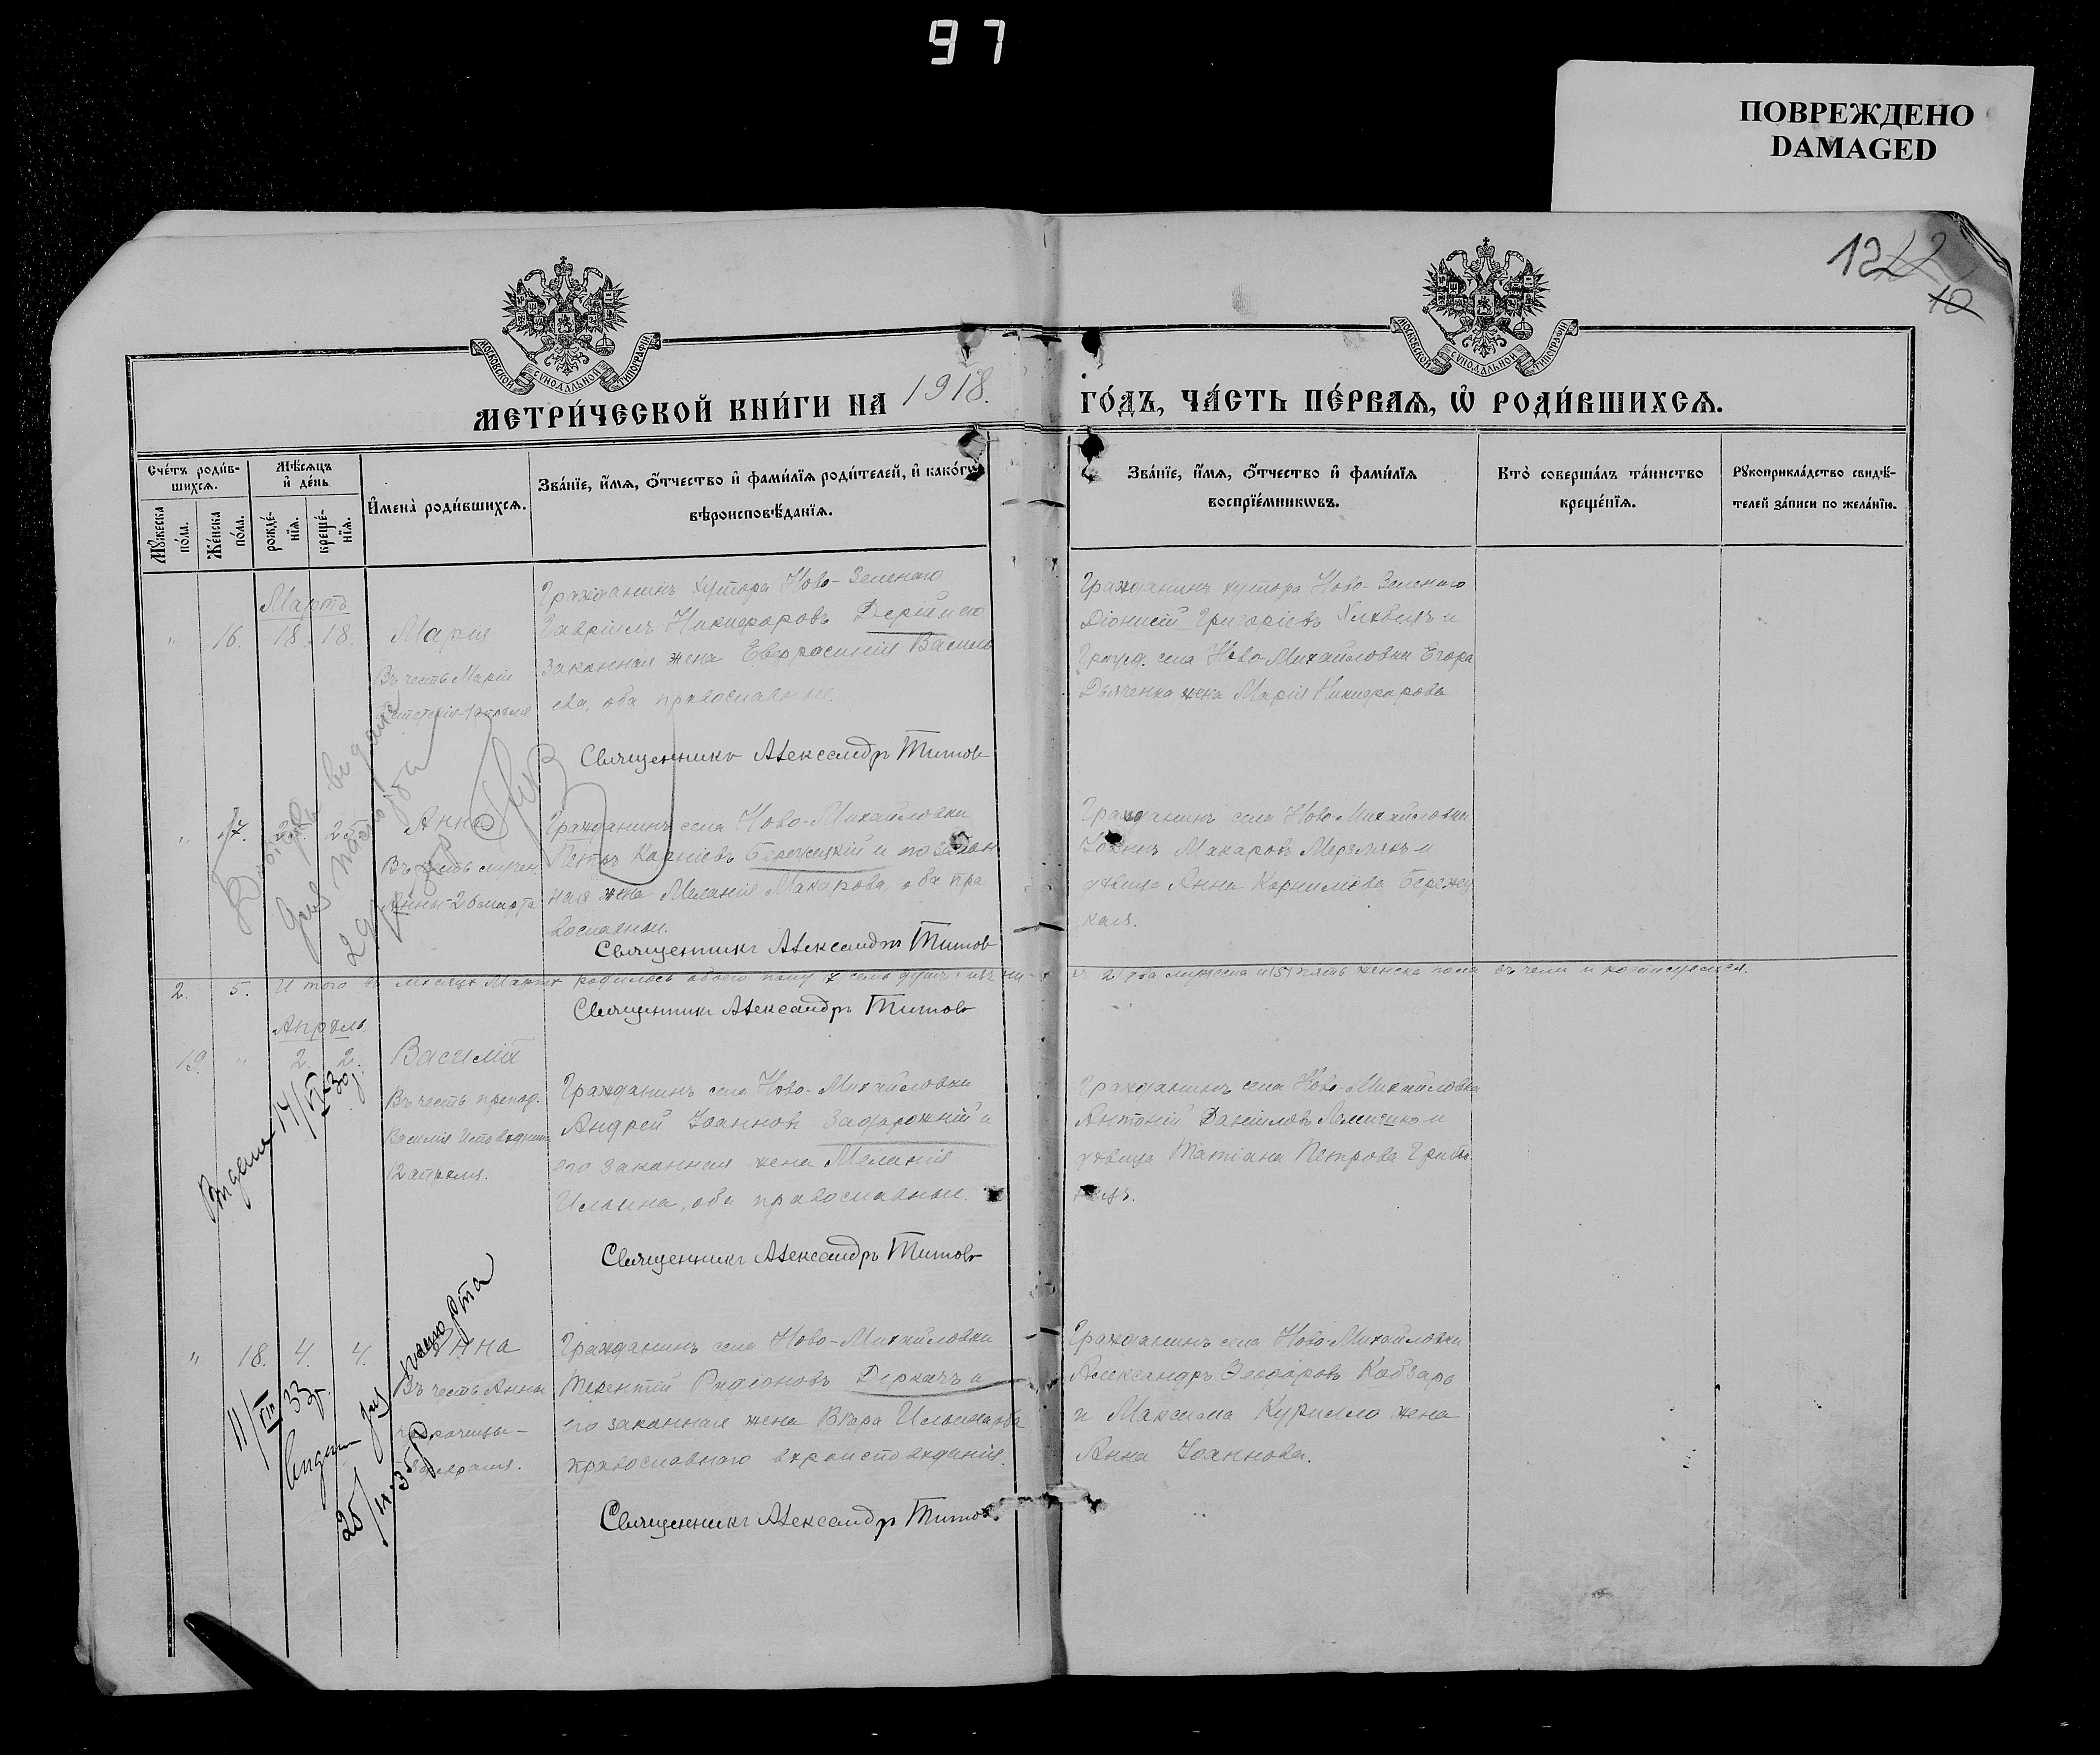 97
ПОВРЕЖДЕНО
DAMAGED
12
10
МОСКОВСКОЙ СУНОДАЛЬНОЙ ТИПОГРАФІИ
МОСКОВСКОЙ СУНОДАЛЬНОЙ ТИПОГРАФІИ
МЕТРИ́ЧЕСКОЙ КНИ́ГИ НА 1918. ГО́ДЪ, ЧА́СТЬ ПЕ́РВАѦ, Ѡ҆ РОДИ́ВШИХСѦ.
Сче́тъ роди́в-
шихсѧ.
Мѣ́сѧцъ
и҆ де́нь
Мꙋ́жеска
по́ла.
Же́нска
по́ла.
рожде́-
нїѧ.
креще́-
нїѧ.
И҆мена̀ роди́вшихсѧ.
Зва́нїе, и҆́мѧ, ѻ҆́тчество и҆ фами́лїѧ роди́телей, и҆ како́гѡ
вѣроисповѣ́данїѧ.
Зва́нїе, и҆́мѧ, ѻ҆́тчество и҆ фами́лїѧ
воспрїе́мникѡвъ.
Кто̀ соверша́лъ та́инство
креще́нїѧ.
Рꙋкоприкла́дство свидѣ́-
телей за́писи по жела́нїю.
Мартъ
" 16. 18. 18. Марія
Въ честь Марія
Гражданинъ хутора Ново-Зеленаго
Гавріилъ Никифоровъ Дерій и его
законная жена Евфросинія Василь
ева, оба православные.
Священникъ Александръ Титовъ
Гражданинъ хутора Ново-Зеленаго
Діонисій Григоріевъ и
Гражд. села Ново-Михайловки Егора
Дьяченка жена Марія Никифорова
" 17. 25. Анна
Въ честь мучен.
Анны 26 марта
Гражданинъ села Ново-Михайловки
Петръ Карпіевъ Бережецкій и его закон
ная жена Меланія Макарова, оба пра
вославные.
Священникъ Александръ Титовъ
Гражданинъ села Ново-Михайловки
Іоаннъ Макаровъ Мерзликъ и
дѣвица Анна Корниліева Бережец
кая.
2. 5. Итого въ мѣсяцѣ Мартѣ родилось обоего полу 7 семь душъ: изъ ни- 2 два мужеска и (5) пять женска пола
Священникъ Александръ Титовъ
Апрѣль
19. " 2. 2. Василій
Въ честь препод.
Василія Исповѣдника
12 апрѣля.
Гражданинъ села Ново-Михайловки
Андрей Іоанновъ Задорожній и
его законная жена Меланія
Ильина, оба православные.
Священникъ Александръ Титовъ
Гражданинъ села Ново-Михайловки
Антоній Даніиловъ и
дѣвица Татіана Петрова
" 18. 4. 4. Анна
Въ честь Анны
пророчицы-
февраля.
Гражданинъ села Ново-Михайловки
Терентій Родіоновъ Деркачъ и
его законная жена Вѣра Ильина оба
православнаго вѣроисповѣданія.
Священникъ Александръ Титовъ
Гражданинъ села Ново-Михайловки
Александръ Ѳеодоровъ Кобзарь
и Максима Курилло жена
Анна Іоаннова.